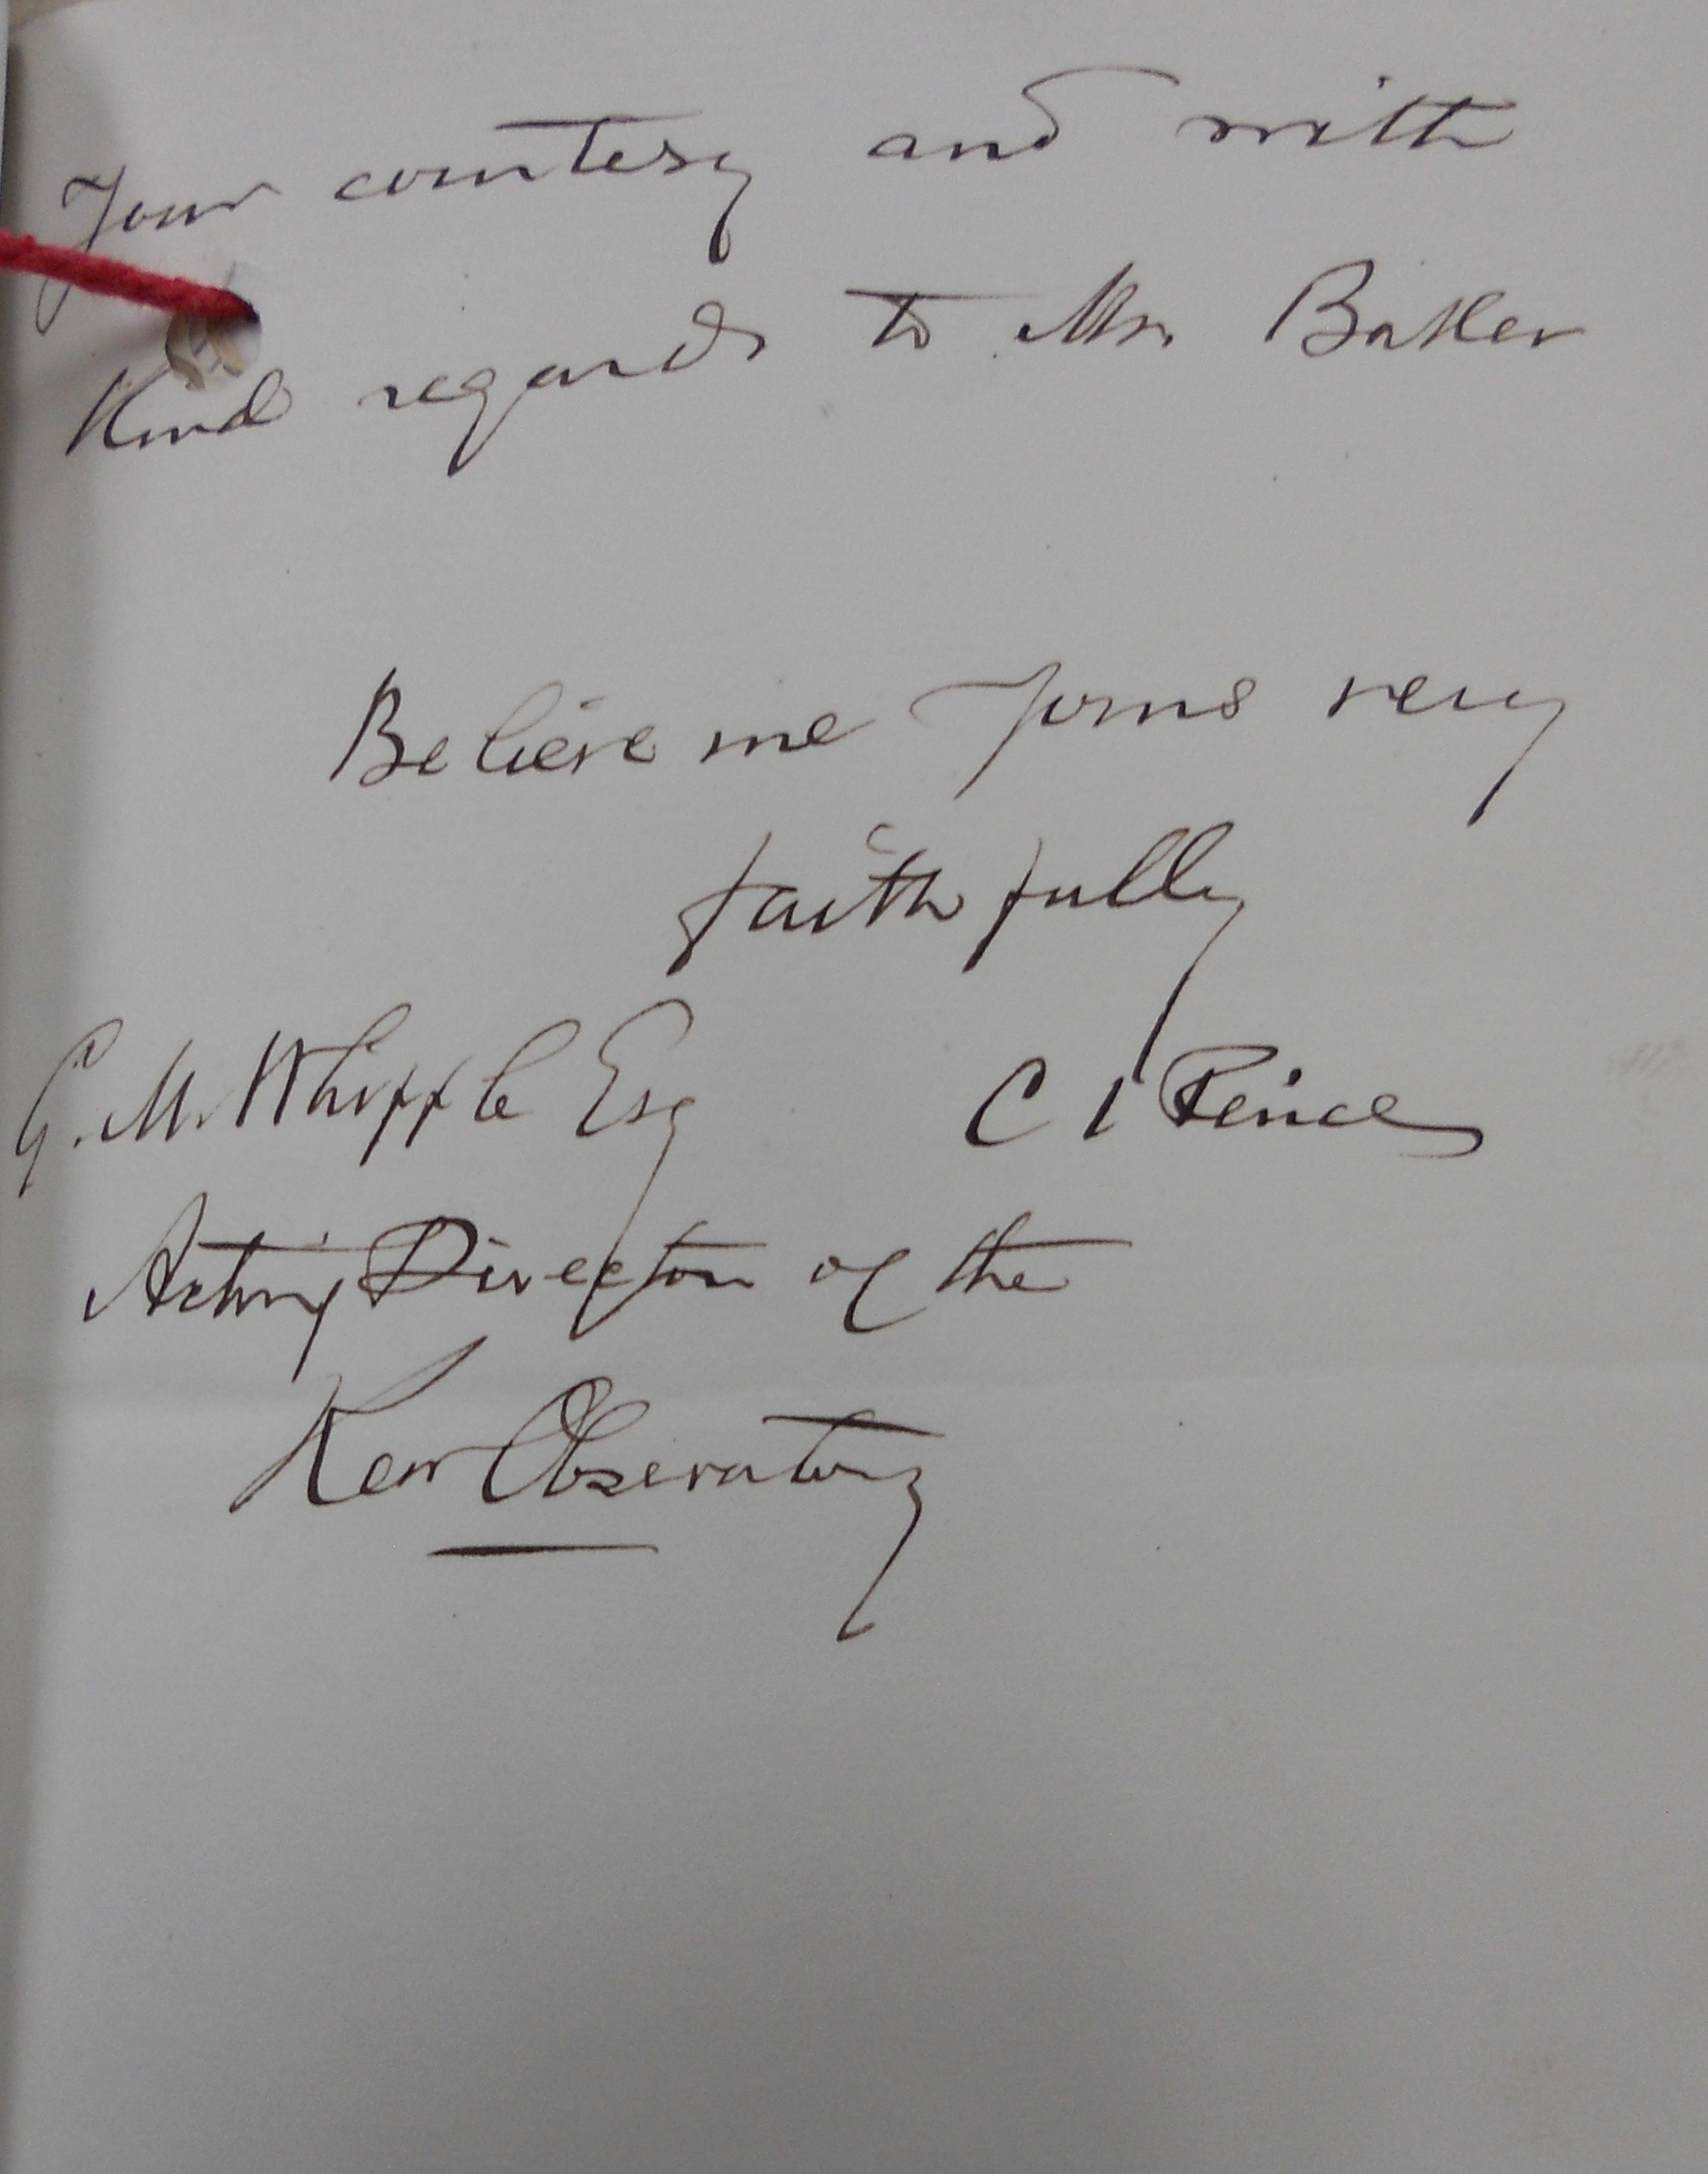 Your courtesy and with
Kind regards to Mr. Baker
Believe me yours very
faithfully
G. M. Whipple Esq
C S Peirce
Acting Director of the
Kew Observatory